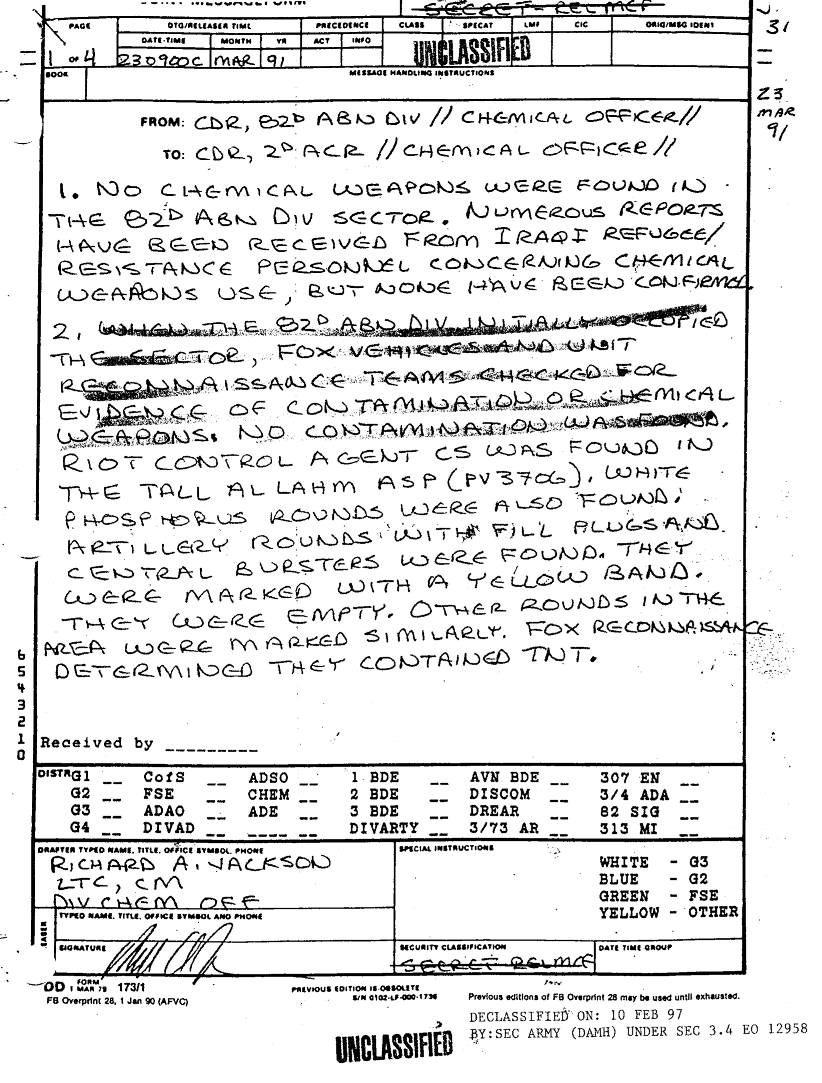 JOINT MESSAGEFORM
SECRET-RELMCF
PAGE DTG/RELEASER TIME PRECEDENCE CLASS SPECAT LMF CIC ORIG/MSG IDENT
DATE-TIME MONTH YR ACT INFO
1 OF 4 230900C MAR 91 UNCLASSIFIED
BOOK MESSAGE HANDLING INSTRUCTIONS
31
23
MAR
91
FROM: CDR, 82D ABN DIV // CHEMICAL OFFICER//
TO: CDR, 2D ACR //CHEMICAL OFFICER//
1. NO CHEMICAL WEAPONS WERE FOUND IN
THE 82D ABN DIV SECTOR. NUMEROUS REPORTS
HAVE BEEN RECEIVED FROM IRAQI REFUGEE/
RESISTANCE PERSONNEL CONCERNING CHEMICAL
WEAPONS USE, BUT NONE HAVE BEEN CONFIRMED.
2. WHEN THE 82D ABN DIV INITIALLY OCCUPIED
THE SECTOR, FOX VEHICLES AND UNIT
RECONNAISSANCE TEAMS CHECKED FOR
EVIDENCE OF CONTAMINATION OR CHEMICAL
WEAPONS. NO CONTAMINATION WAS FOUND.
RIOT CONTROL AGENT CS WAS FOUND IN
THE TALL AL LAHM ASP (PV3706). WHITE
PHOSPHORUS ROUNDS WERE ALSO FOUND.
ARTILLERY ROUNDS WITH FILL PLUGS AND
CENTRAL BURSTERS WERE FOUND. THEY
WERE MARKED WITH A YELLOW BAND.
THEY WERE EMPTY. OTHER ROUNDS IN THE
AREA WERE MARKED SIMILARLY. FOX RECONNAISSANCE
DETERMINED THEY CONTAINED TNT.
6
5
4
3
2
1
0
Received by _________
DISTR G1 __ CofS __ ADSO __ 1 BDE __ AVN BDE __ 307 EN __
G2 __ FSE __ CHEM __ 2 BDE __ DISCOM __ 3/4 ADA __
G3 __ ADAO __ ADE __ 3 BDE __ DREAR __ 82 SIG __
G4 __ DIVAD __ ____ __ DIVARTY __ 3/73 AR __ 313 MI __
DRAFTER TYPED NAME, TITLE, OFFICE SYMBOL, PHONE
RICHARD A. JACKSON
LTC, CM
DIV CHEM OFF
SPECIAL INSTRUCTIONS
WHITE - G3
BLUE - G2
GREEN - FSE
YELLOW - OTHER
TYPED NAME, TITLE, OFFICE SYMBOL AND PHONE
SIGNATURE
SECURITY CLASSIFICATION
SECRET RELMCF
DATE TIME GROUP
DD FORM 1 MAR 79 173/1
PREVIOUS EDITION IS OBSOLETE
S/N 0102-LF-000-1736
FB Overprint 28, 1 Jan 90 (AFVC)
Previous editions of FB Overprint 28 may be used until exhausted.
DECLASSIFIED ON: 10 FEB 97
BY:SEC ARMY (DAMH) UNDER SEC 3.4 EO 12958
UNCLASSIFIED